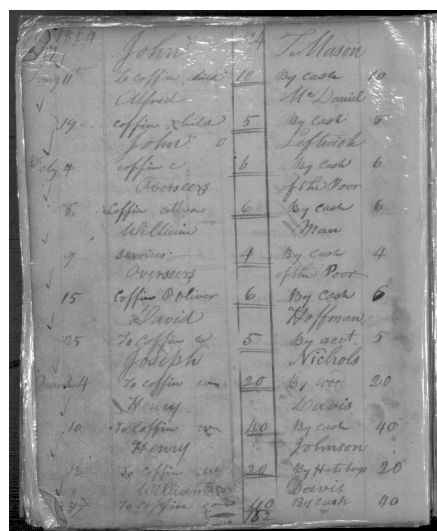 1824
John T Mason
To Coffin 10 By Cash 10
Alfred McDaniel
19 Coffin child 5 By Cash 5
John O Leftwich
4 coffin c 6 By Cash 6
Overseers of the Poor
8 Coffin 6 By Cash 6
William Man
9 services 4 By Cash 4
Overseers of the Poor
15 Coffin P Oliver 6 By Cash 6
David Hoffman
25 To coffin 5 By acct 5
Joseph Nichols
4 To coffin 20 By 20
Henry Davis
10 To Coffin 40 By Cash 40
Henry Johnson
12 To Coffin 20 By 20
William Davis
To Coffin 40 By Cash 40